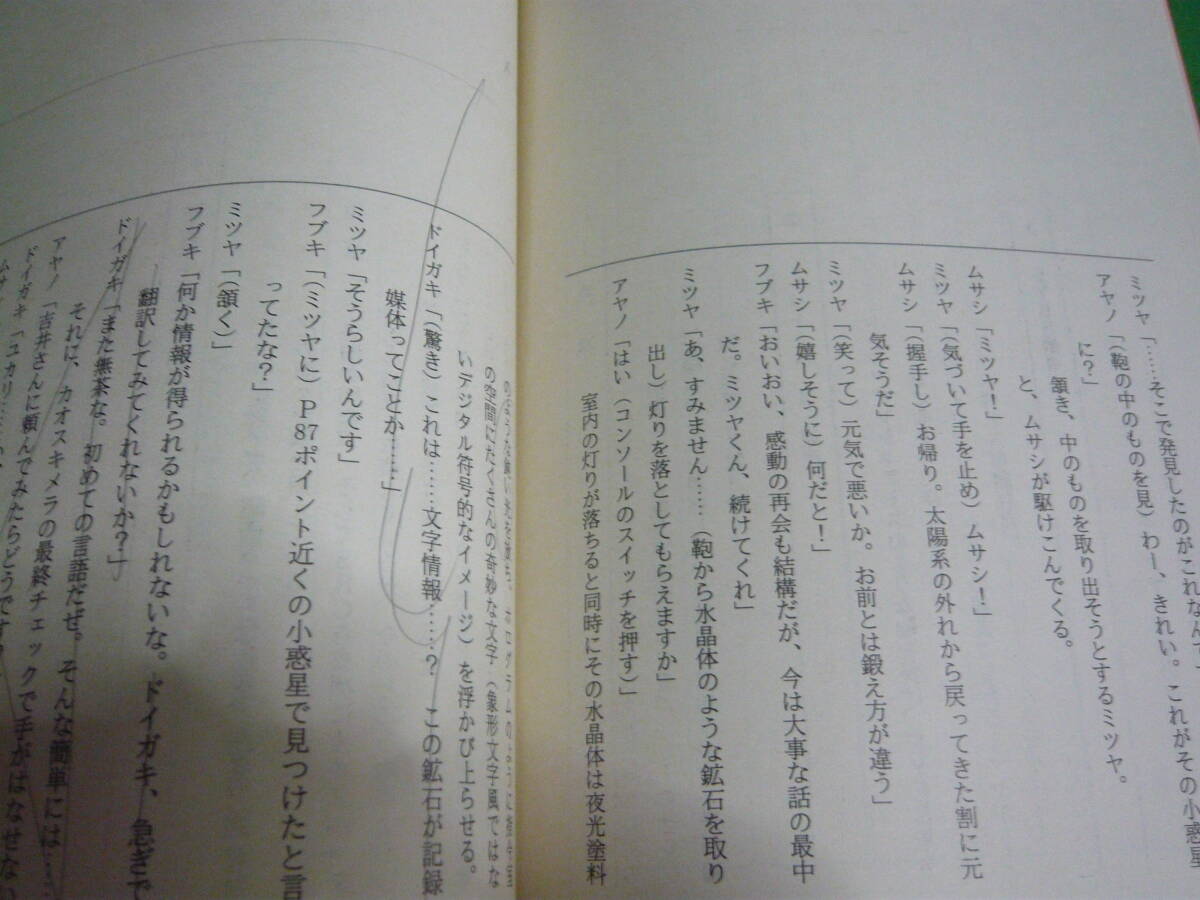 ミツヤ「……そこで発見したのがこれなんで
アヤノ「(鞄の中のものを見)わー、きれい。これがその小惑星
に?」
頷き、中のものを取り出そうとするミツヤ。
と、ムサシが駆けこんでくる。
ムサシ「ミツヤ!」
ミツヤ「(気づいて手を止め)ムサシ!」
ムサシ「(握手し)お帰り。太陽系の外れから戻ってきた割に元
気そうだ」
ミツヤ「(笑って)元気で悪いか。お前とは鍛え方が違う」
ムサシ「(嬉しそうに)何だと!」
フブキ「おいおい、感動の再会も結構だが、今は大事な話の最中
だ。ミツヤくん、続けてくれ」
ミツヤ「あ、すみません……(鞄から水晶体のような鉱石を取り
出し)灯りを落としてもらえますか」
アヤノ「はい(コンソールのスイッチを押す)」
室内の灯りが落ちると同時にその水晶体は夜光塗料
のような鈍い光を放ち、ホログラムのように指令室
の空間にたくさんの奇妙な文字(象形文字風ではな
いデジタル符号的なイメージ)を浮かび上らせる。
ドイガキ「(驚き)これは……文字情報……? この鉱石が記録
媒体ってことか……」
ミツヤ「そうらしいんです」
フブキ「(ミツヤに)P87ポイント近くの小惑星で見つけたと言
ってたな?」
ミツヤ「(頷く)」
フブキ「何か情報が得られるかもしれないな。ドイガキ、急ぎで
翻訳してみてくれないか?」
ドイガキ「また無茶な。初めての言語だぜ。そんな簡単には……
それに、カオスキメラの最終チェックで手がはなせない
アヤノ「吉井さんに頼んでみたらどうです?
ドイガキ「ユカリ……
ムサ